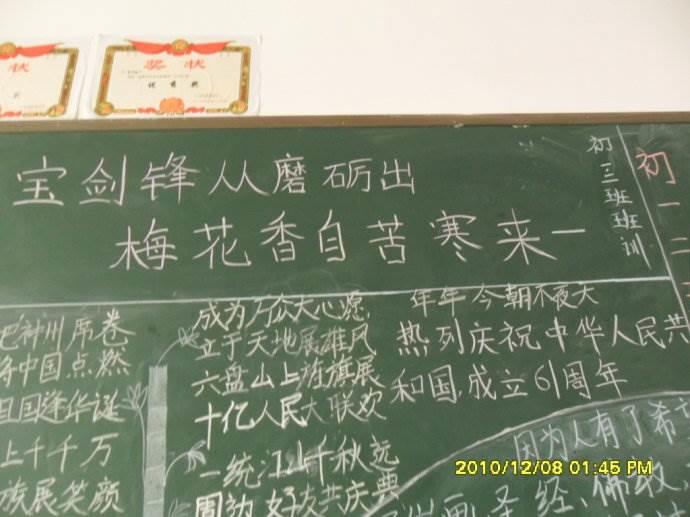 状
奖状
宝剑锋从磨砺出
梅花香自苦寒来一
初三班班训
初一二
神州席卷
中国点燃
国逢华诞
上千千万
族展笑颜
成为万众大心愿
立于天地展雄风
六盘山上旌旗展
十亿人民大联欢
一统江山千秋远
周边好友共庆典
年年今朝不夜大
热列庆祝中华人民共
和国,成立61周年
因为人有了希
经、佛教,
2010/12/08 01:45 PM